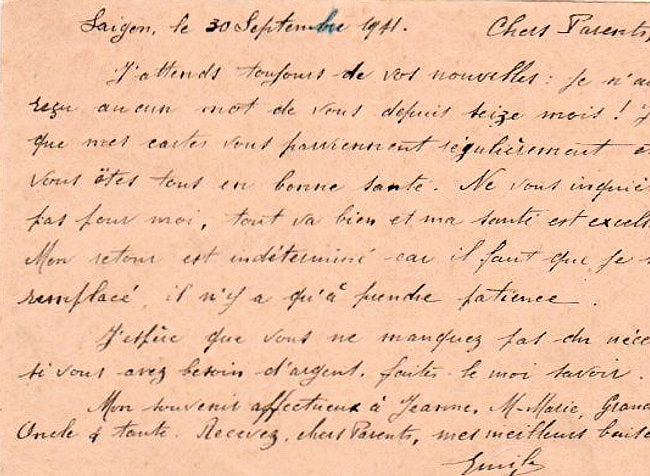 Saigon, le 30 Septembre 1941. Chers Parents,
J'attends toujours de vos nouvelles : je n'ai
reçu aucun mot de vous depuis seize mois ! J'
que mes cartes vous parviennent régulièrement et
vous êtes tous en bonne santé. Ne vous inquié
pas pour moi, tout va bien et ma santé est excell
Mon retour est indéterminé car il faut que je s
remplacé, il n'y a qu'à prendre patience.
J'espère que vous ne manquez pas du néce
si vous avez besoin d'argent, faites-le moi savoir.
Mon souvenir affectueux à Jeanne, M-Marie, Grand
Oncle & tante. Recevez, chers Parents, mes meilleurs baise
Emile